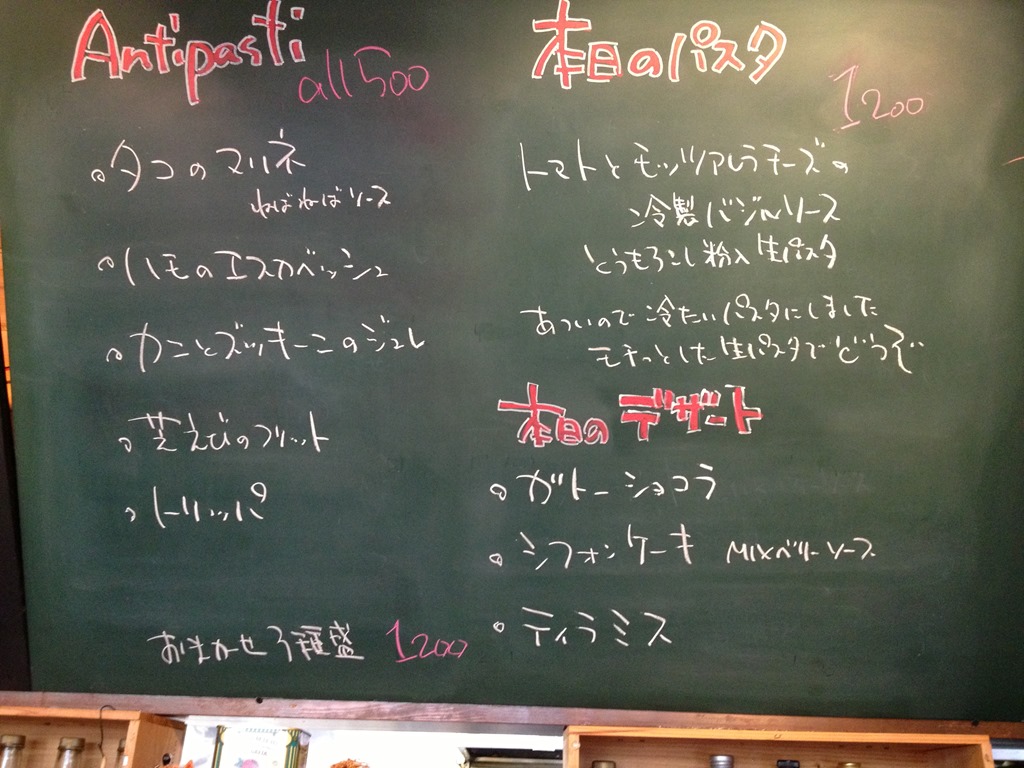 Antipasti
all 500
タコのマリネ
ねばねばソース
ハモのエスカベッシュ
カニとズッキーニのジュレ
芝えびのフリット
トリッパ
おまかせ3種盛 1200
本日のパスタ
1200
トマトとモッツァレラチーズの
冷製バジルソース
とうもろこし粉入生パスタ
あついので冷たいパスタにしました
モチっとした生パスタでどうぞ
本日のデザート
ガトーショコラ
シフォンケーキ MIXベリーソース
ティラミス